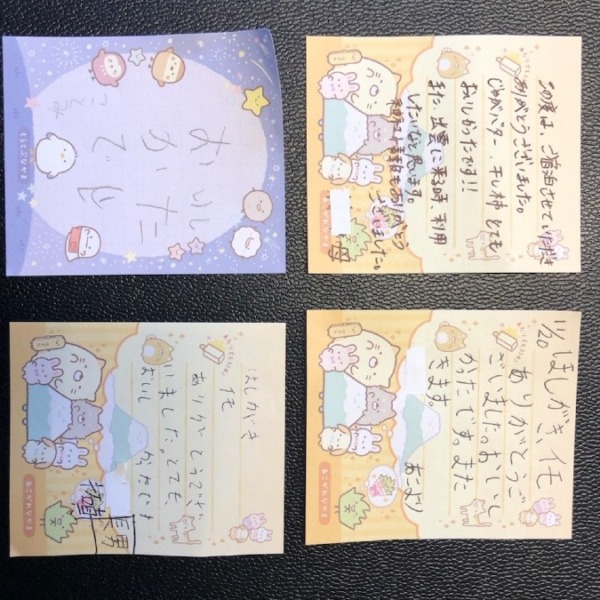 この度は、ご宿泊させていただき
ありがとうございました。
じゃがバター、干し柿とても
おいしかったです!!
また、出雲に来る時、利用
したいなと思います。
ありがとう
ございました。
母
おいし
かった
です
11/20 ほしがき、イモ
ありがとうご
ざいました。おいし
かったです。また
きます。
あこより
ほしがき
イモ
ありがとうござ
いました。とても
おいし かったです
長男